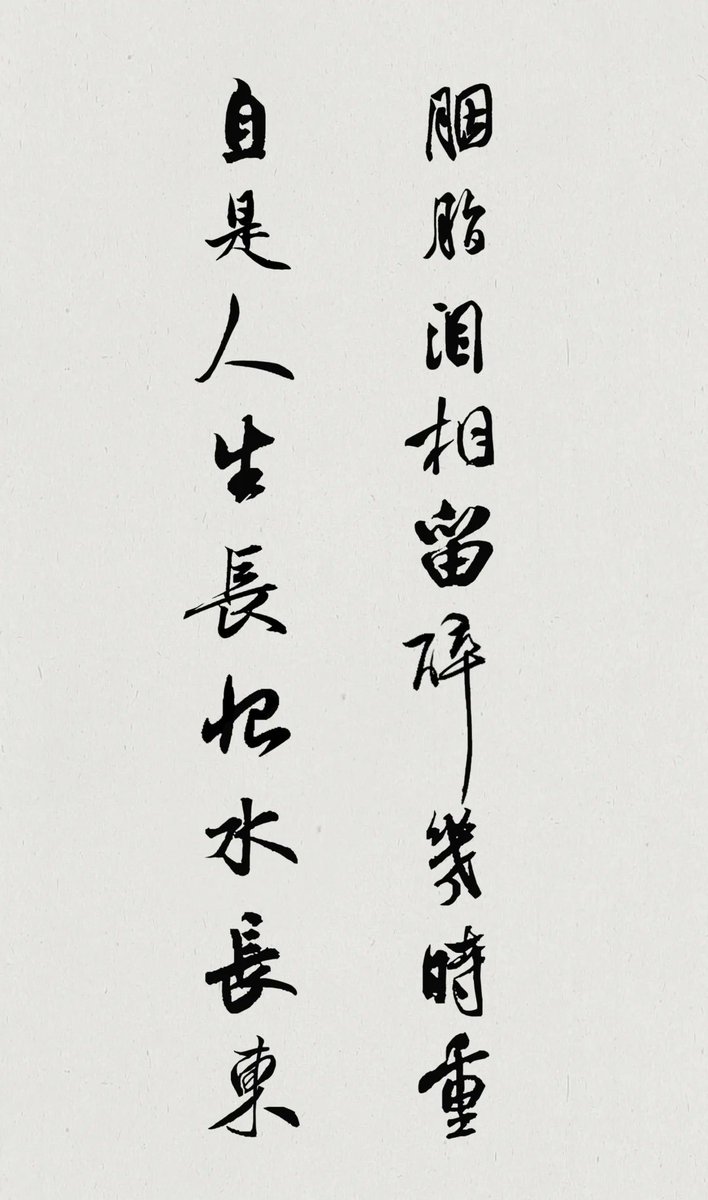 胭脂泪相留醉幾時重
自是人生長恨水長東